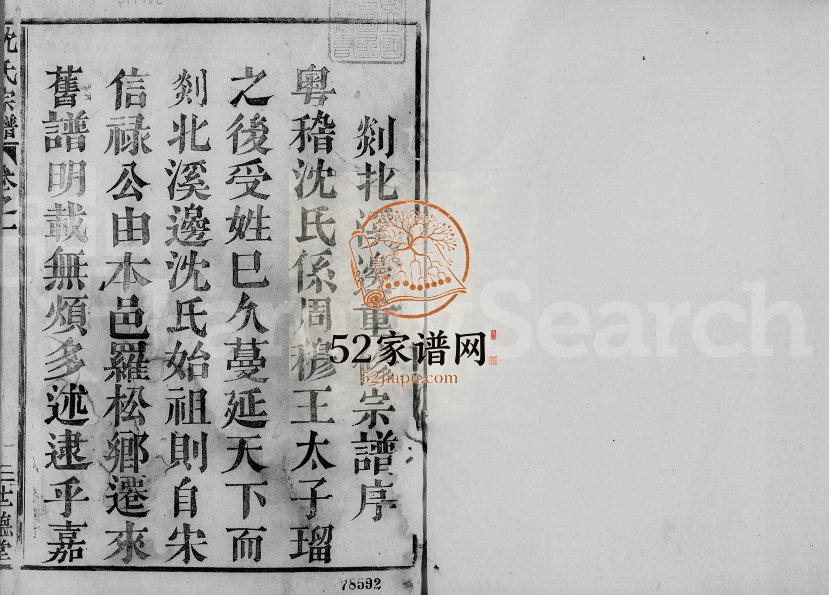 剡北溪邊重修宗譜序
粤稽沈氏係周穆王太子瑠
之後受姓巳久蔓延天下而
剡北溪邊沈氏始祖則自宋
信禄公由本邑羅松鄉遷來
舊譜明載無煩多述逮乎嘉
沈氏宗譜
卷之一
世德堂
78592
FamilySearch
52家谱网
52jiapu.com